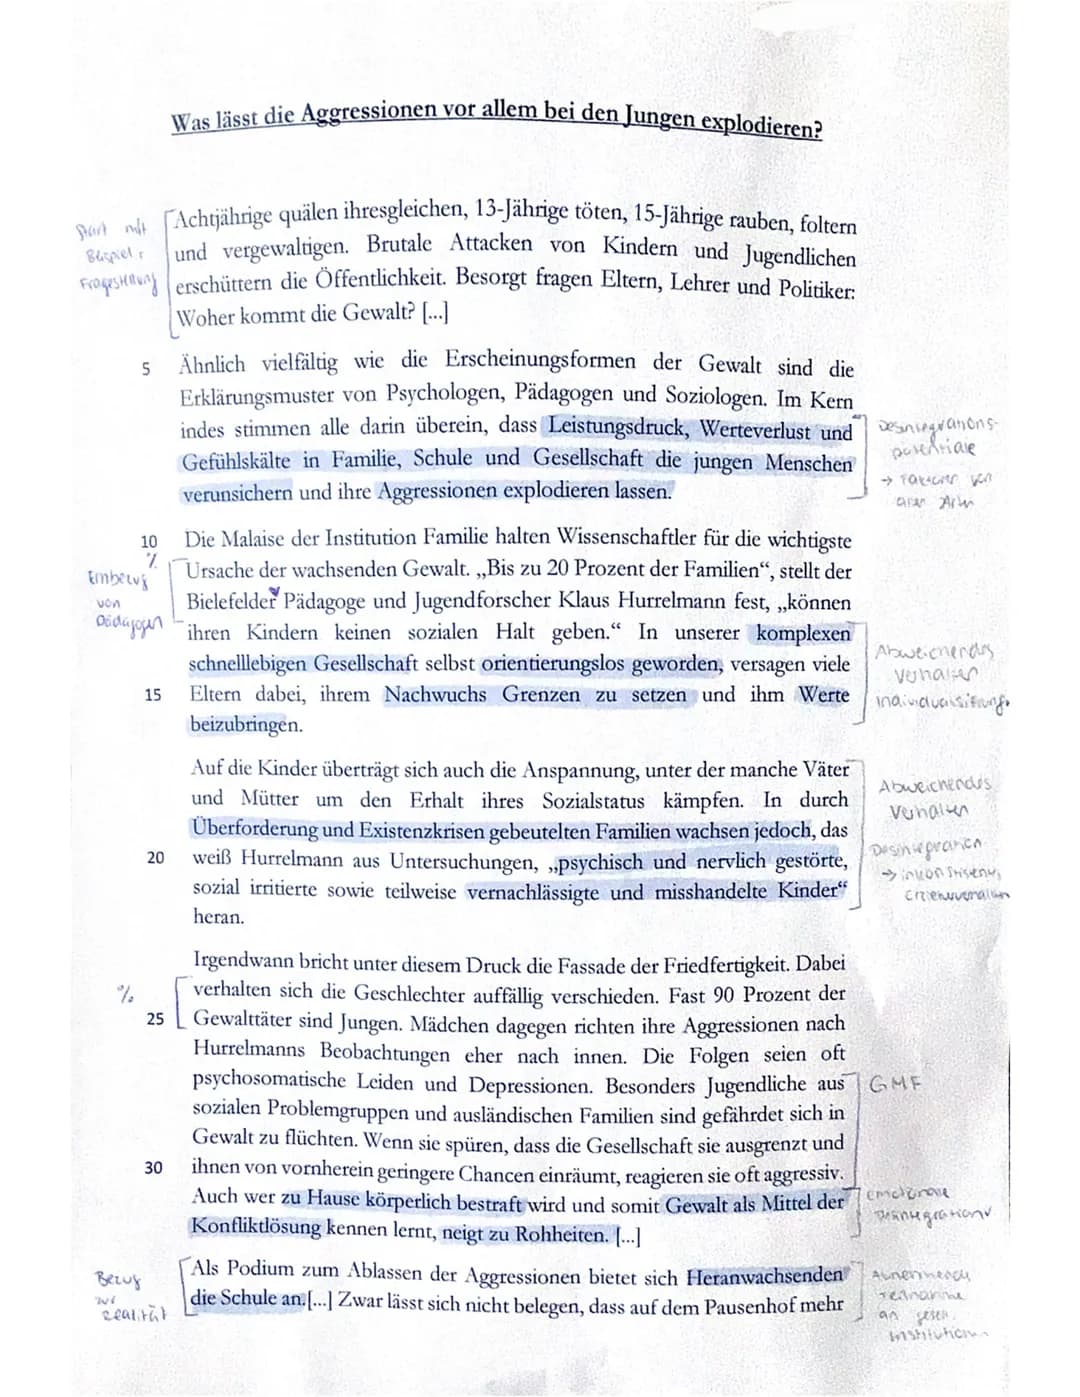 Was lässt die Aggressionen vor allem bei den Jungen explodieren?
Start mit
Beispiel,
Fragestellung
Achtjährige quälen ihresgleichen, 13-Jährige töten, 15-Jährige rauben, foltern
und vergewaltigen. Brutale Attacken von Kindern und Jugendlichen
erschüttern die Öffentlichkeit. Besorgt fragen Eltern, Lehrer und Politiker:
Woher kommt die Gewalt? [...]
5 Ähnlich vielfältig wie die Erscheinungsformen der Gewalt sind die
Erklärungsmuster von Psychologen, Pädagogen und Soziologen. Im Kern
indes stimmen alle darin überein, dass Leistungsdruck, Werteverlust und
Gefühlskälte in Familie, Schule und Gesellschaft die jungen Menschen
verunsichern und ihre Aggressionen explodieren lassen.
Desintegrations-
potentiale
→ Faktoren von
allen Arten
10 Die Malaise der Institution Familie halten Wissenschaftler für die wichtigste
Ursache der wachsenden Gewalt. „Bis zu 20 Prozent der Familien“, stellt der
Bielefelder Pädagoge und Jugendforscher Klaus Hurrelmann fest, „können
ihren Kindern keinen sozialen Halt geben.“ In unserer komplexen
schnelllebigen Gesellschaft selbst orientierungslos geworden, versagen viele
15 Eltern dabei, ihrem Nachwuchs Grenzen zu setzen und ihm Werte
beizubringen.
%
Einbezug
von
Pädagogen
Abweichendes
Verhalten
Individualisierung
Auf die Kinder überträgt sich auch die Anspannung, unter der manche Väter
und Mütter um den Erhalt ihres Sozialstatus kämpfen. In durch
Überforderung und Existenzkrisen gebeutelten Familien wachsen jedoch, das
20 weiß Hurrelmann aus Untersuchungen, „psychisch und nervlich gestörte,
sozial irritierte sowie teilweise vernachlässigte und misshandelte Kinder“
heran.
Abweichendes
Verhalten
Desintegration
→ inkonsistentes
Irgendwann bricht unter diesem Druck die Fassade der Friedfertigkeit. Dabei
verhalten sich die Geschlechter auffällig verschieden. Fast 90 Prozent der
25 Gewalttäter sind Jungen. Mädchen dagegen richten ihre Aggressionen nach
Hurrelmanns Beobachtungen eher nach innen. Die Folgen seien oft
psychosomatische Leiden und Depressionen. Besonders Jugendliche aus
sozialen Problemgruppen und ausländischen Familien sind gefährdet sich in
Gewalt zu flüchten. Wenn sie spüren, dass die Gesellschaft sie ausgrenzt und
30 ihnen von vornherein geringere Chancen einräumt, reagieren sie oft aggressiv.
Auch wer zu Hause körperlich bestraft wird und somit Gewalt als Mittel der
Konfliktlösung kennen lernt, neigt zu Rohheiten. [...]
%
GMF
emotionale
Desintegration
Als Podium zum Ablassen der Aggressionen bietet sich Heranwachsenden
die Schule an.[...] Zwar lässt sich nicht belegen, dass auf dem Pausenhof mehr
Bezug
zur
Realität
Teilnahme
an gesell.
Institutionen